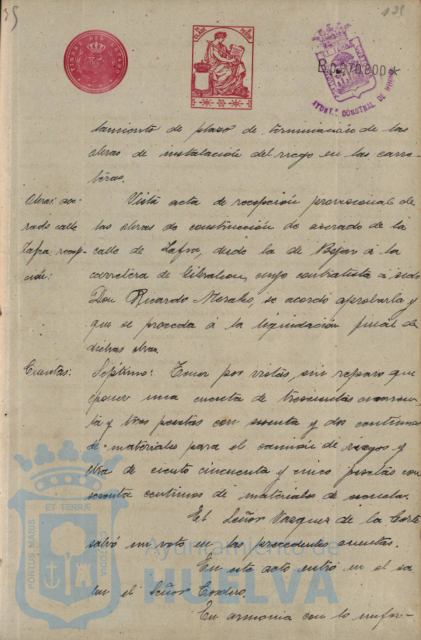 121
B.0.270.800*
AYUNT. CONSTNAL DE HUELVA
tamiento de plazo de terminación de las
obras de instalación del riego en las carre-
teras.
Obras: ace-
rado calle
Zafra, recep-
ción:
Vista acta de recepción provisional de
las obras de construcción de acerado de la
calle de Zafra, desde la de Bejar á la
carretera de Gibraleon, cuyo contratista á sido
Don Ricardo Morales, se acordó aprobarla y
que se proceda á la liquidación final de
dichas obras.
Cuentas:
Séptimo: Tener por vistas, sin reparo que
oponer una cuenta de trescientas cuaren-
ta y tres pesetas con sesenta y dos centimos
de materiales para el camión de riegos y
otra de ciento cincuenta y cinco pesetas con
sesenta centimos de materiales de escuelas.
El Señor Vazquez de la Corte
salvó su voto en las precedentes cuentas.
En este acto entró en el sa-
lon el Señor Cordero.
En armonia con lo infor-
PORTUS MARIS ET TERRAE CUSTODIA
Ayuntamiento de
HUELVA